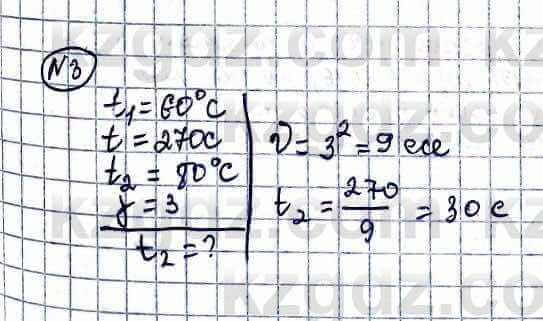 N3
t₁ = 60°C
t = 270c
t₂ = 80°C
γ = 3
t₂ = ?
ν = 3² = 9 есе
t₂ = 270/9 = 30 c
kzgdz.com